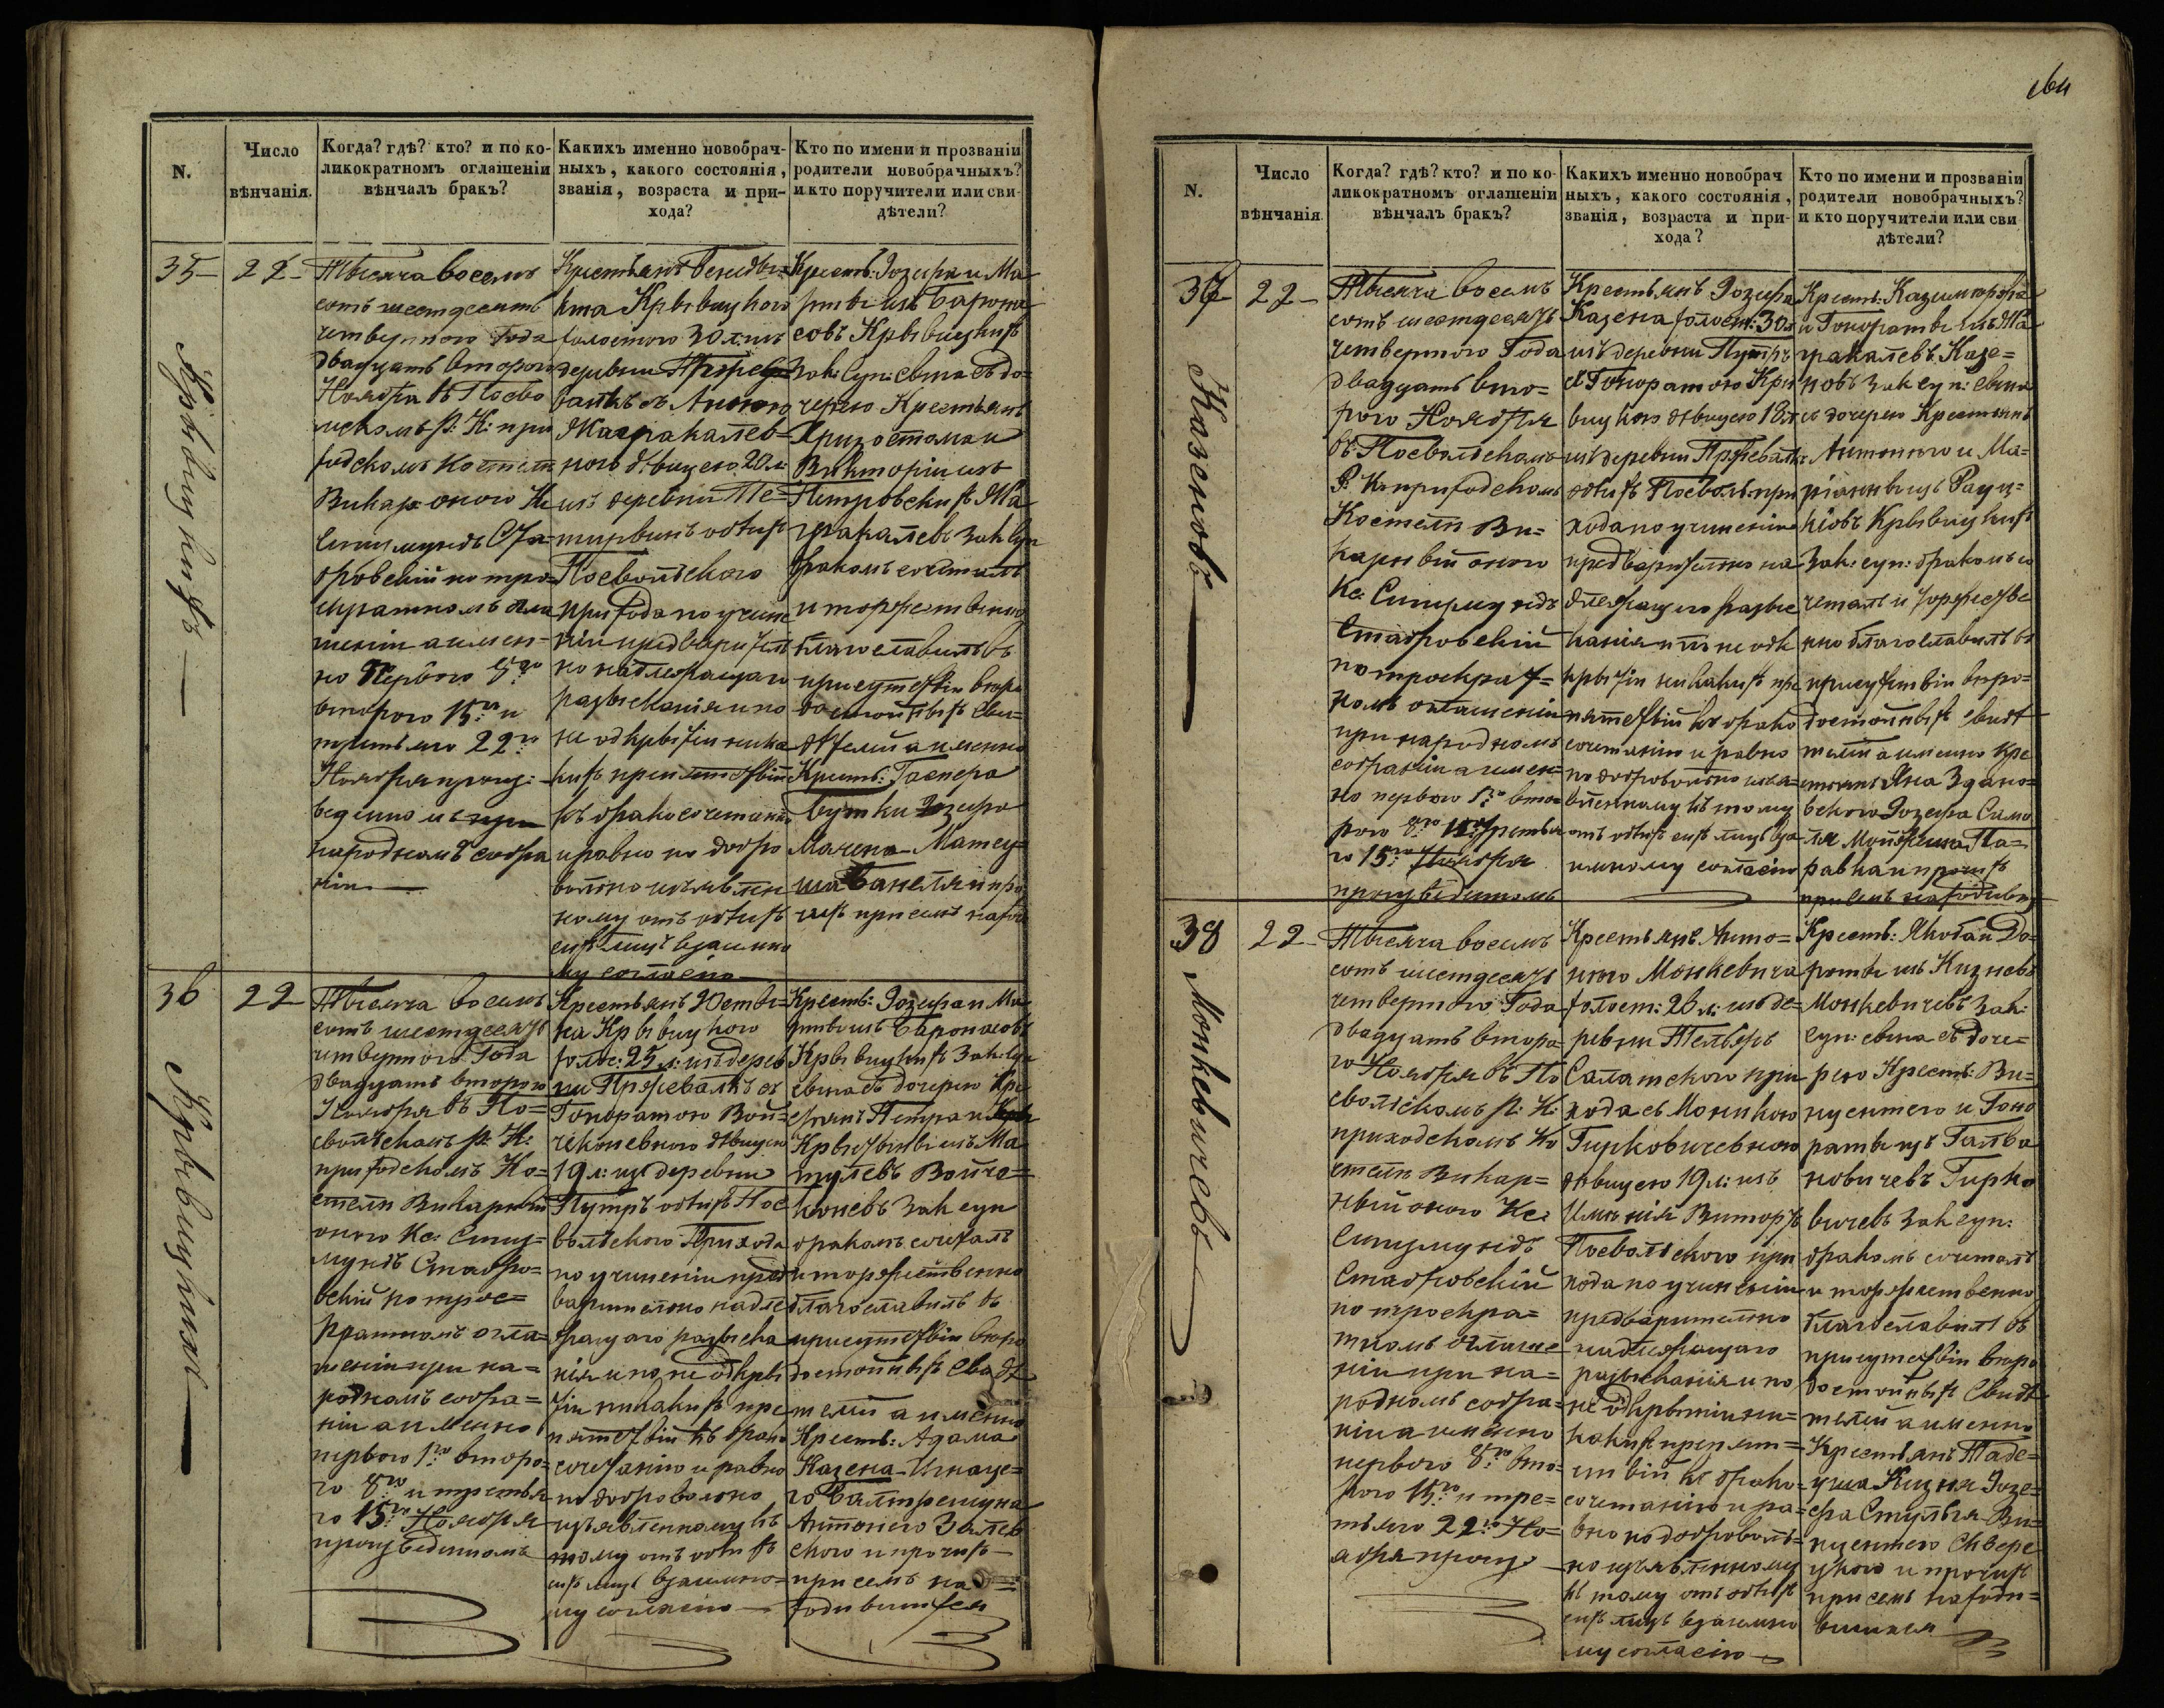 164
N.
Число
вѣнчанія.
Когда? гдѣ? кто? и по ко-
ликократномъ оглашеніи
вѣнчалъ бракъ?
Какихъ именно новобрач-
ныхъ, какого состоянія,
званія, возраста и при-
хода?
Кто по имени и прозваніи
родители новобрачныхъ?
и кто поручители или сви-
дѣтели?
35
22
Тысяча восемь
сотъ шестдесятъ
четвертого Года
двадцать второго
Ноября въ Посво
льскомъ Р: К: при
ходскомъ Костелѣ
Викар: оного Кс:
по трое
кратномъ огла
шеніи а имен-
но первого 8го
второго 15го и
третьяго 22го
Ноября произ-
народномъ собра
ніи
Крестьянъ Бенеди
кта Крывицкого
холостого 30 лѣтъ
деревни
съ Анною
ною дѣвицею 20 л:
изъ деревни
обоихъ
Посвольского
прихода по учине
ніи предварительно
надлежащаго
разысканія и по
не открытіи ника
кихъ препятствій
къ бракосочетанію
и равно по добро
вольно изъявлен
ному отъ обоихъ
сихъ лицъ взаимно
му согласію
Крест: Іозефа и Ма
рты изъ Барона
совъ Крывицкихъ
зак: суп: сына съ до
черью Крестьянъ
Хризостома и
Викторіи изъ
Петровскихъ
зак: суп
бракомъ сочеталъ
и торжественно
благославилъ въ
присутствіи вѣро
достойныхъ сви
дѣтелей а именно
Крест: Гаспера
Іозефа
и про
чихъ при семъ наход
Крывицкихъ
36
22
Тысяча восемь
сотъ шестдесятъ
четвертого Года
двадцать второго
Ноября въ По=
свольскомъ Р: К:
приходскомъ Ко=
стелѣ Викарный
оного Кс: Сигиз=
мундъ Стабро=
вскій по трое=
кратномъ огла=
шеніи при на=
родномъ собра=
ніи а именно
первого 1го второ=
го 8го и третья
го 15го Ноября
произведенномъ
Крестьянъ Юсты=
на Крывицкого
холос: 25 л: изъ дерев
ни Пржевалкъ съ
Гоноратою Вой=
чеконевною дѣвицею
19 л: изъ деревни
Путръ обоихъ Пос
вольского Прихода
по учиненіи пред
варительно надле
жащаго разыска
нія и по не откры
тіи никакихъ пре
пятствій къ брако
сочетанію и равно
по добровольно
изъявленному къ
тому отъ обоихъ
сихъ лицъ взаимно=
му согласію
Крест: Іозефа и Ма
рты изъ Баронасовъ
Крывицкихъ зак: суп
сына съ дочерью Кре
стьянъ Петра и
Крыстыны изъ Ма
тулевъ Войче=
коневъ зак суп
бракомъ сочеталъ
и торжественно
благославилъ въ
присутствіи вѣро
достойныхъ Свидѣ
телей а именно
Крест: Адама
Казена Игнаце=
го Балтрешуна
Антонего Залев
ского и прочихъ
при семъ на=
ходившихся
Крывицкихъ
N.
Число
вѣнчанія.
Когда? гдѣ? кто? и по ко-
ликократномъ оглашеніи
вѣнчалъ бракъ?
Какихъ именно новобрач
ныхъ, какого состоянія,
званія, возраста и при-
хода?
Кто по имени и прозваніи
родители новобрачныхъ?
и кто поручители или сви
дѣтели?
37
22
Тысяча восемь
сотъ шестдесятъ
четвертого Года
двадцать вто=
рого Ноября
въ Посвольскомъ
Р: К: приходскомъ
Костелѣ Ви=
карный оного
Кс: Сигизмундъ
Стабровскій
по троекрат=
номъ оглашеніи
при народномъ
собраніи а имен=
но первого 1го вто
рого 8го третья
го 15го Ноября
произведенномъ
Крестьянъ Іозефа
Казена холост: 30 л
изъ деревни Путръ
съ Гоноратою Кры
вицкою дѣвицею 18 л
изъ деревни Пржевалкъ
обоихъ Посвольс: при
хода по учиненіи
предварительно на
длежащаго разыс
канія и по не отк
рытіи никакихъ пре
пятствій къ брако
сочетанію и равно
по добровольно изъя=
вленному къ тому
отъ обоихъ сихъ лицъ вза
имному согласію
Крест: Казимѣржа
и Гонораты изъ
Казе=
новъ зак суп: сына
съ дочерью Крестьянъ
Антонего и Ма=
ріанны изъ Рауц=
кіовъ Крывицкихъ
зак: суп: бракомъ со
четалъ и торжестве
нно благославилъ въ
присутствіи вѣро=
достойныхъ Свидѣ
телей а именно Кре
стьянъ Яна Здано=
вского Іозефа Симо
и прочихъ
при семъ находивш
Казеновъ
38
22
Тысяча восемь
сотъ шестдесятъ
четвертого Года
двадцать второ=
го Ноября въ По
свольскомъ Р: К:
приходскомъ Ко
стелѣ Викар=
ный оного Кс:
Сигизмундъ
Стабровскій
по троекра=
тномъ оглаше
ніи при на=
родномъ собра=
ніи а именно
первого 8го вто=
рого 15го и тре=
тьяго 22го Но=
ября произ
Крестьянъ Анто=
него Монкевича
холост: 26 л: изъ де=
ревни
Салатского при
хода съ Моникою
Гирковичевною
дѣвицею 19 л: изъ
Имѣнія
Посвольского при
хода по учиненіи
предварительно
надлежащаго
разысканія и по
не открытіи ни=
какихъ препят=
ствій къ брако=
сочетанію и ра=
вно по доброволь=
но изъявленному
къ тому отъ обоихъ
сихъ лицъ взаимно
му согласію
Крест: Якоба и До
роты изъ Кизневъ
Монкевичевъ зак:
суп: сына съ доче=
рью Крест: Ви=
центтего и Гоно
раты изъ Галва
новичевъ Гирко
вичевъ зак суп:
бракомъ сочеталъ
и торжественно
благославилъ въ
присутствіи вѣро
достойныхъ Свидѣ
телей а именно
Крестьянъ Таде=
уша Кизня Іозе=
фа Стульгя Ви=
центего Сквере
цкого и прочихъ
при семъ находи=
вшихся
Монкевичевъ